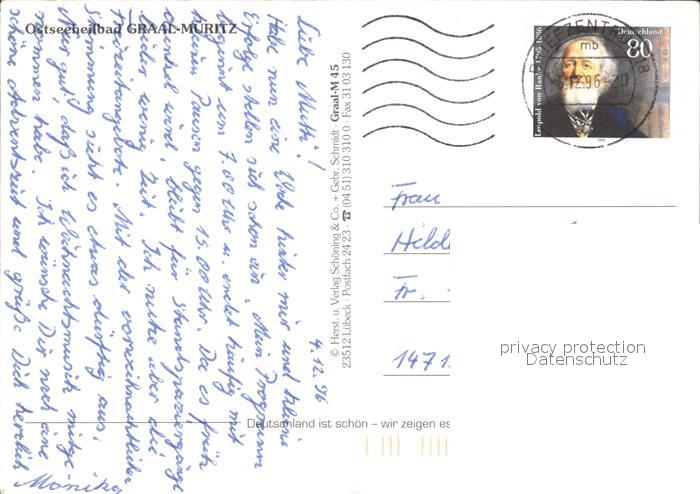 Ostseeheilbad GRAAL-MÜRITZ
4.12.96
Liebe Mutti!
Habe nun eine Woche hinter mir und kleine
Erfolge stellen sich schon ein. Mein Programm
beginnt um 7.00 Uhr u. endet häufig mit
Pausen gegen 15.00 Uhr. Da es früh
dunkel wird, bleibt für Strandspaziergänge
leider wenig Zeit. Ich nutze aber die
Freizeitangebote. Mit der vorweihnachtlichen
Stimmung sieht es etwas dürftig aus.
Nur gut, daß ich Weihnachtsmusik mitge-
nommen habe. Ich wünsche Dir noch eine
schöne Adventszeit und grüße Dich herzlich
Monika
© Herst. u. Verlag Schöning & Co. + Gebr. Schmidt · Graal-M 45
23512 Lübeck · Postfach 24 23 · ☎ (04 51) 310 310 0 · Fax 31 03 130
BRIEFZENTRUM
mb
.12.96-20
18
Deutschland
80
Leopold von Ranke 1795-1886
Frau
Hild
Fr.
1471
privacy protection
Datenschutz
Deutschland ist schön – wir zeigen es